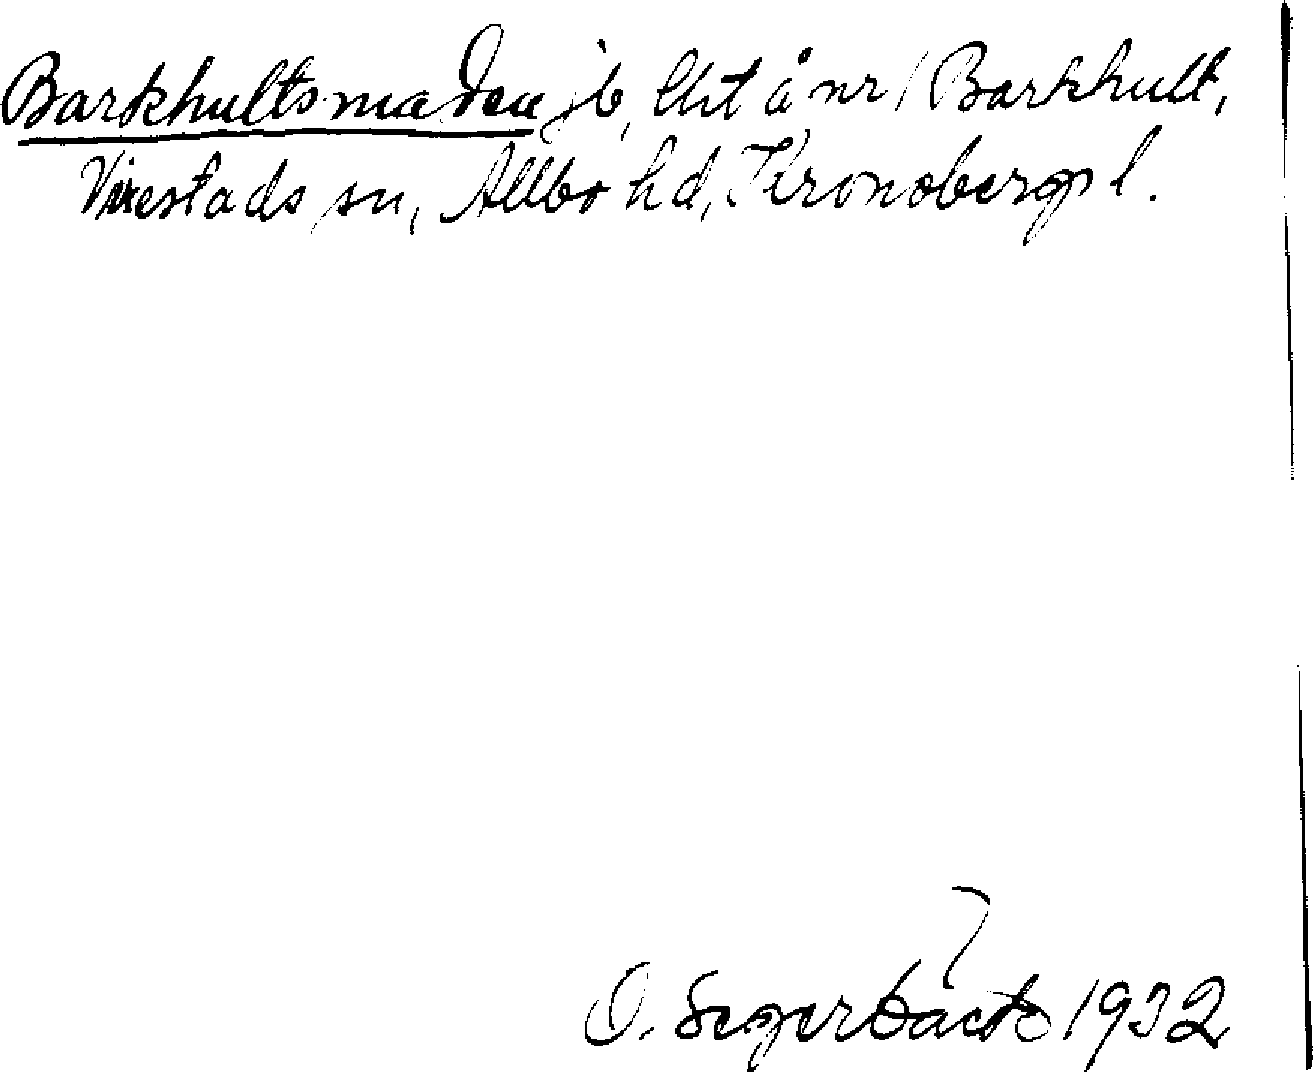 Barkhultsmaden jb, lht å nr 1 Barkhult,
Virestads sn, Allbo hd, Kronobergs l.
O. Segerbäck 1932